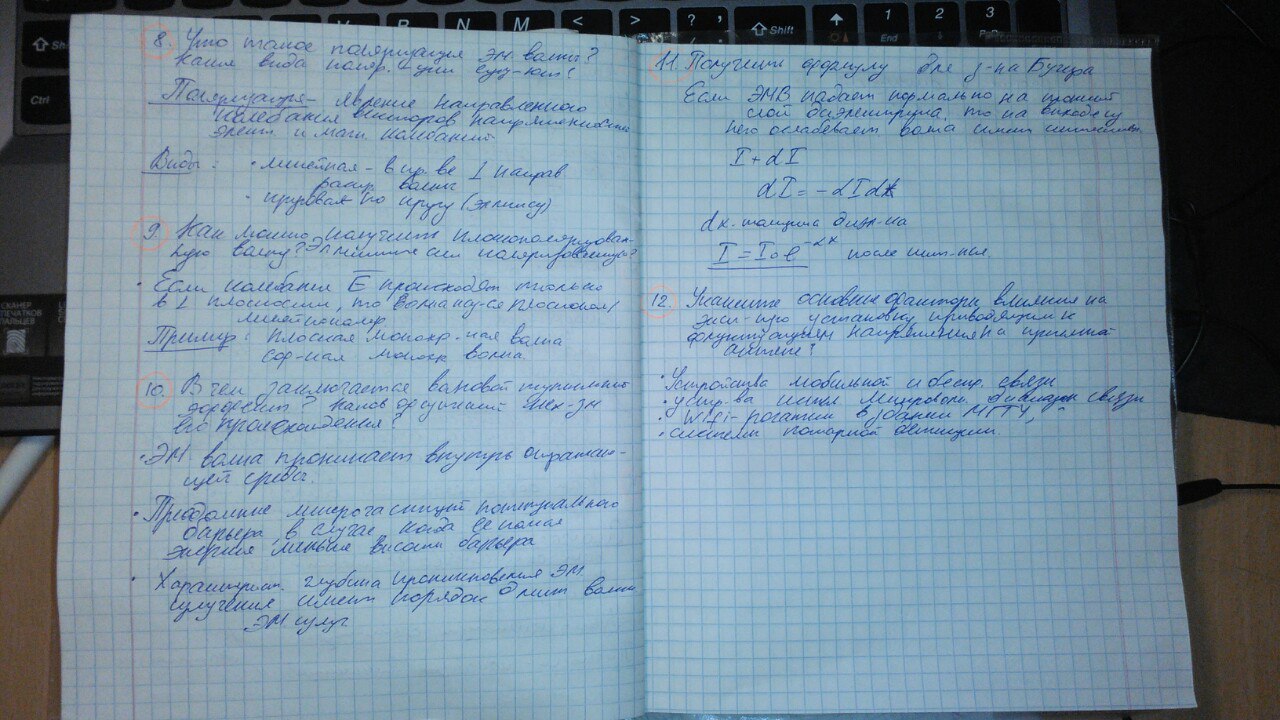 8. Что такое поляризация ЭМ волны?
Какие вида поляр-ции сущ-ют?
Поляризация - явление направленного
колебания векторов напряженности
электр и магн колебаний.
Виды: • линейная - в пр. ве ⊥ направ
распр волны
• круговая по кругу (эллипсу)
9. Как можно получить плоскополяризован-
ную волну? Эллиптически поляризованную?
• Если колебания E происходят только
в 1 плоскости, то волну наз-ся плоской/
линейнополяр
Пример: плоская монохр-ная волна
сф-ная монохр волна.
10. В чем заключается волновой туннельный
эффект? Каков физический мех-зм
его происхождения?
• ЭМ. волна проникает внутрь отражаю-
щей среды.
• Преодоление микрочастицей потенциального
барьера, в случае когда ее полная
энергия меньше высоты барьера
• Характерист. глубина проникновения ЭМ
излучения имеет порядок длит волны
ЭМ излуч
11. Получить формулу для з-на Бугера
Если ЭМВ падает нормально на плоский
слой диэлектрика, то на выходе из
него ослабевает волна имеет интенсивн.
I + dI
dI = -αIdx
dx - толщина диэл-ка
I = I₀e^-αx после инт-ния
12. Укажите основные факторы влияния на
эксп-ную установку приводящим к
флуктуациям напряжения на приемной
антенне?
• Устройства мобильной и беспр. связи
• устр-ва
• Wifi-роутеры в здании МГТУ,
• системы пожарной
Shift
Ctrl
N
M
<
>
?
Shift
1
End
2
3
PgDn
СКАНЕР
ОТПЕЧАТКОВ
ПАЛЬЦЕВ